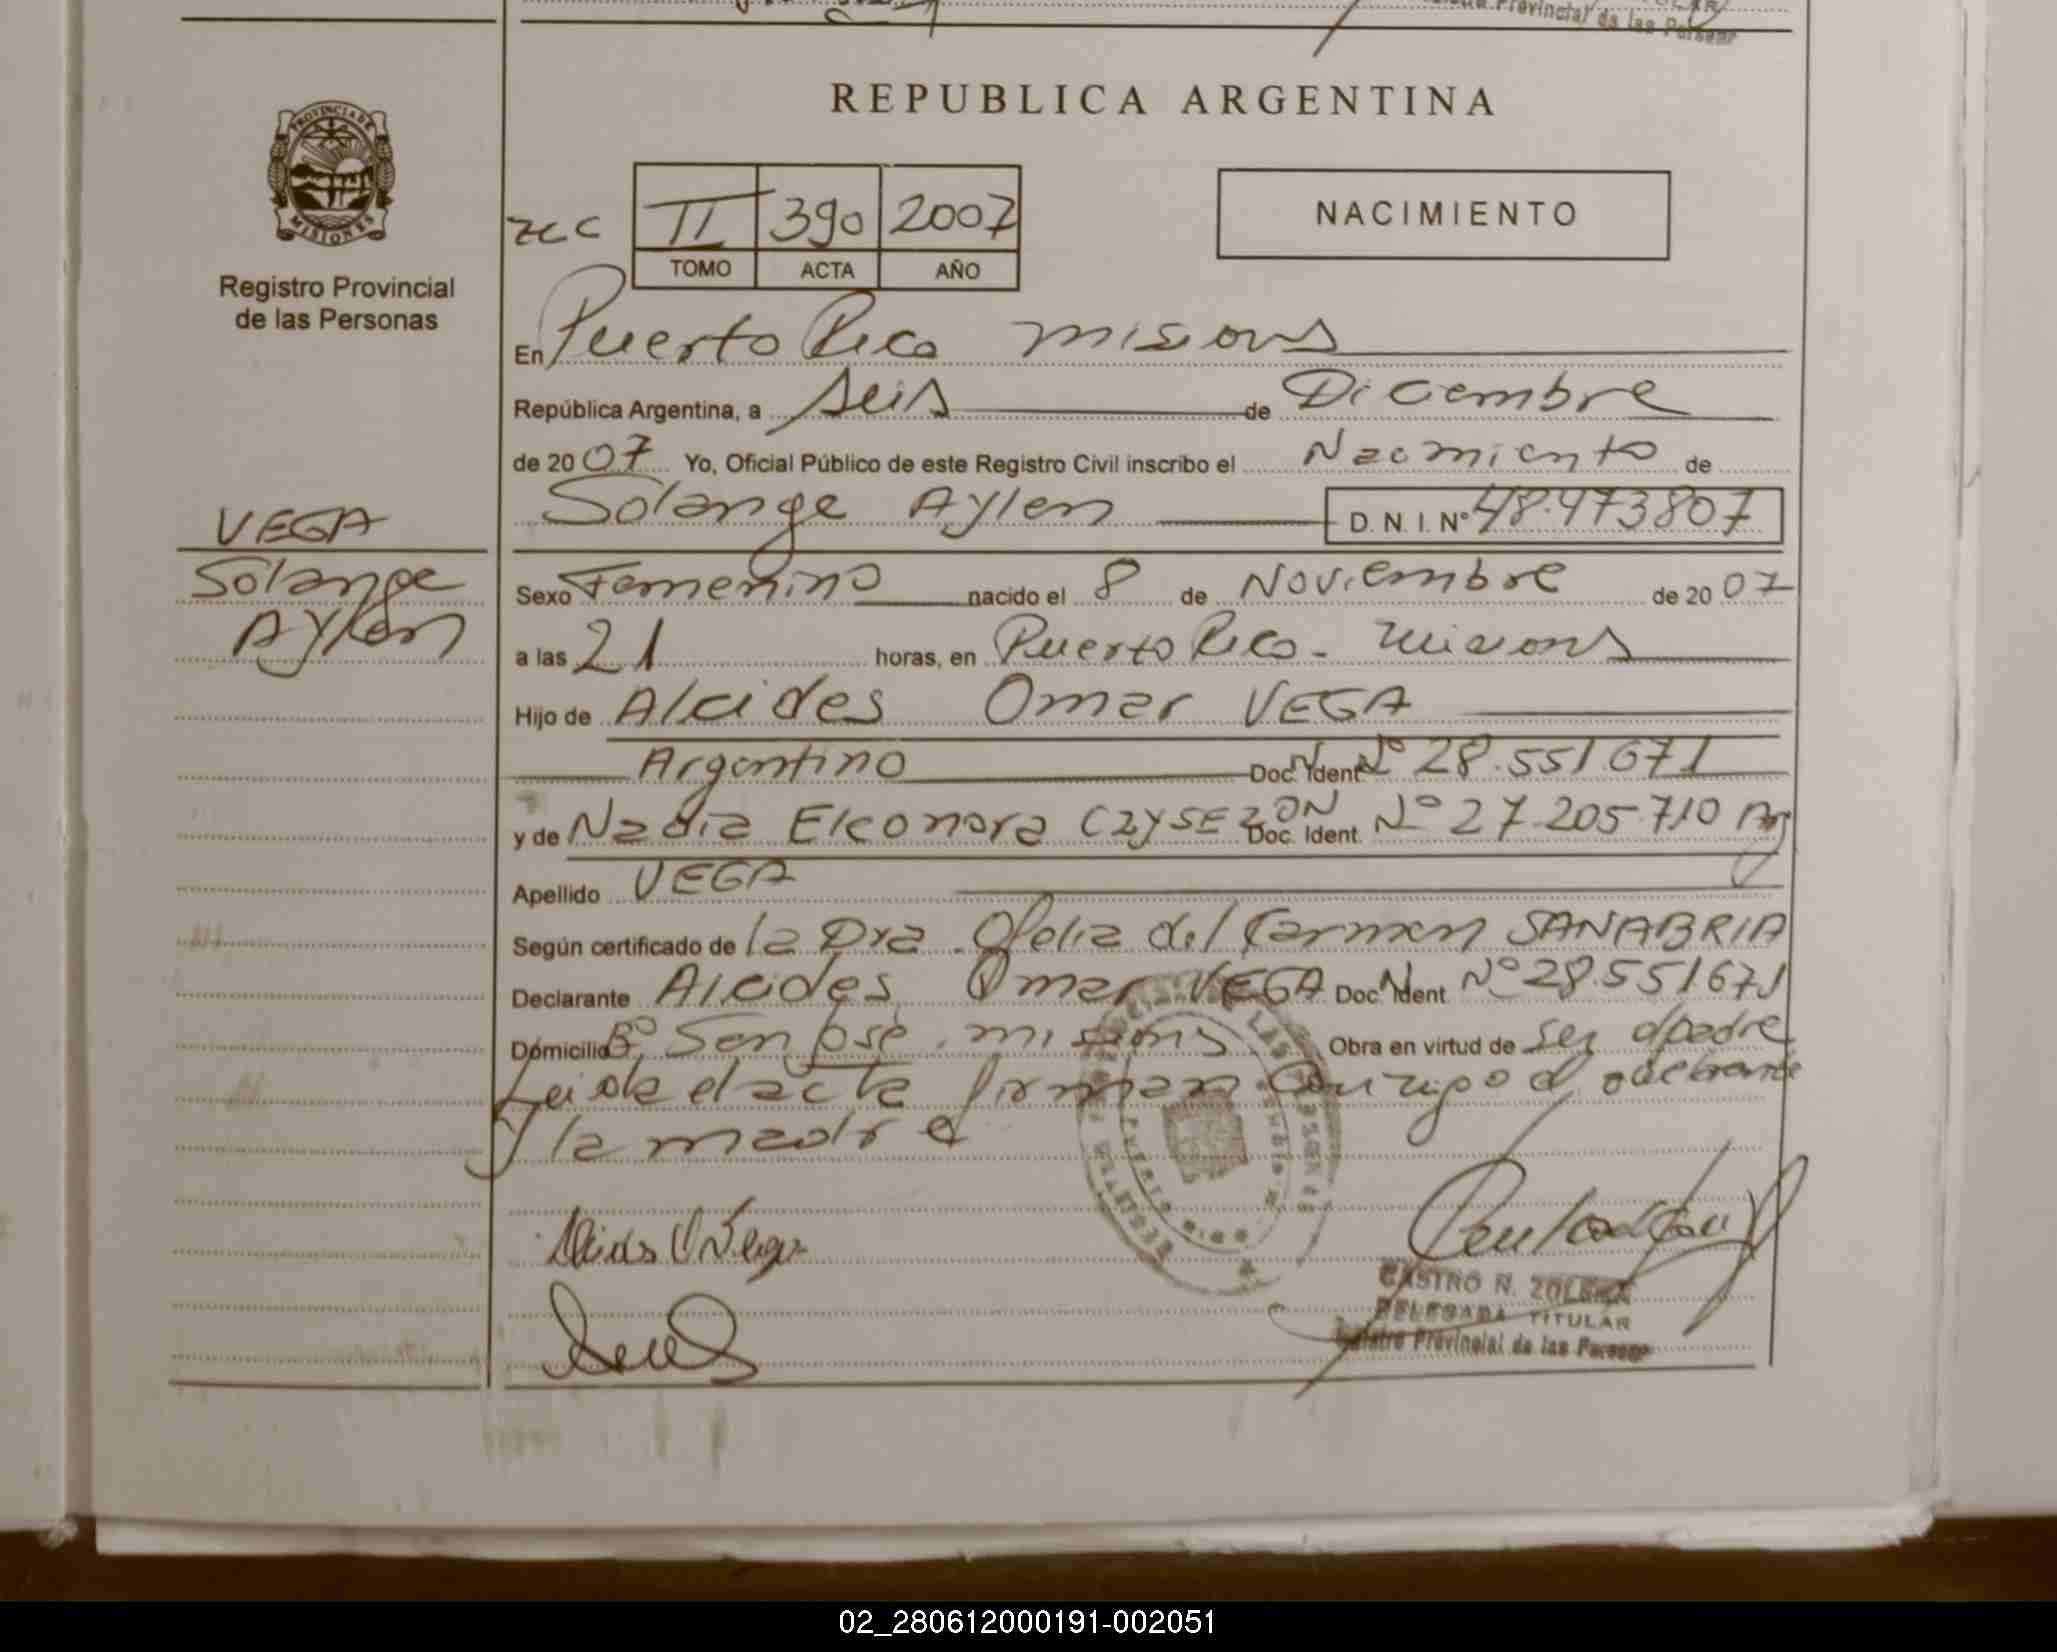 Registro Provincial de las Personas
REPUBLICA ARGENTINA
PROVINCIA DE
MISIONES
Registro Provincial
de las Personas
zcc II 390 2007
TOMO ACTA AÑO
NACIMIENTO
En Puerto Rico Misions
República Argentina, a seis de Diciembre
de 2007 Yo, Oficial Público de este Registro Civil inscribo el Nacimiento de
Solange Aylen D. N. I. Nº 48.473807
VEGA
Solange
Aylen
Sexo Femenino nacido el 8 de Noviembre de 2007
a las 21 horas, en Puerto Rico - Misions
Hijo de Alcides Omar VEGA
Argentino Doc. Ident. Nº 28.551671
y de Nadia Eleonora CZYSEZON Doc. Ident. Nº 27.205.710 Arg
Apellido VEGA
Según certificado de la Dra. Ofelia del Carmen SANABRIA
Declarante Alcides Omar VEGA Doc. Ident Nº 28.551.671
Domicilio Bº San José. Misions Obra en virtud de ser el padre
Leida el acta firman conmigo el declarante
y la madre
CASTRO N. ZULEMA
DELEGADA TITULAR
Registro Provincial de las Personas
02_280612000191-002051